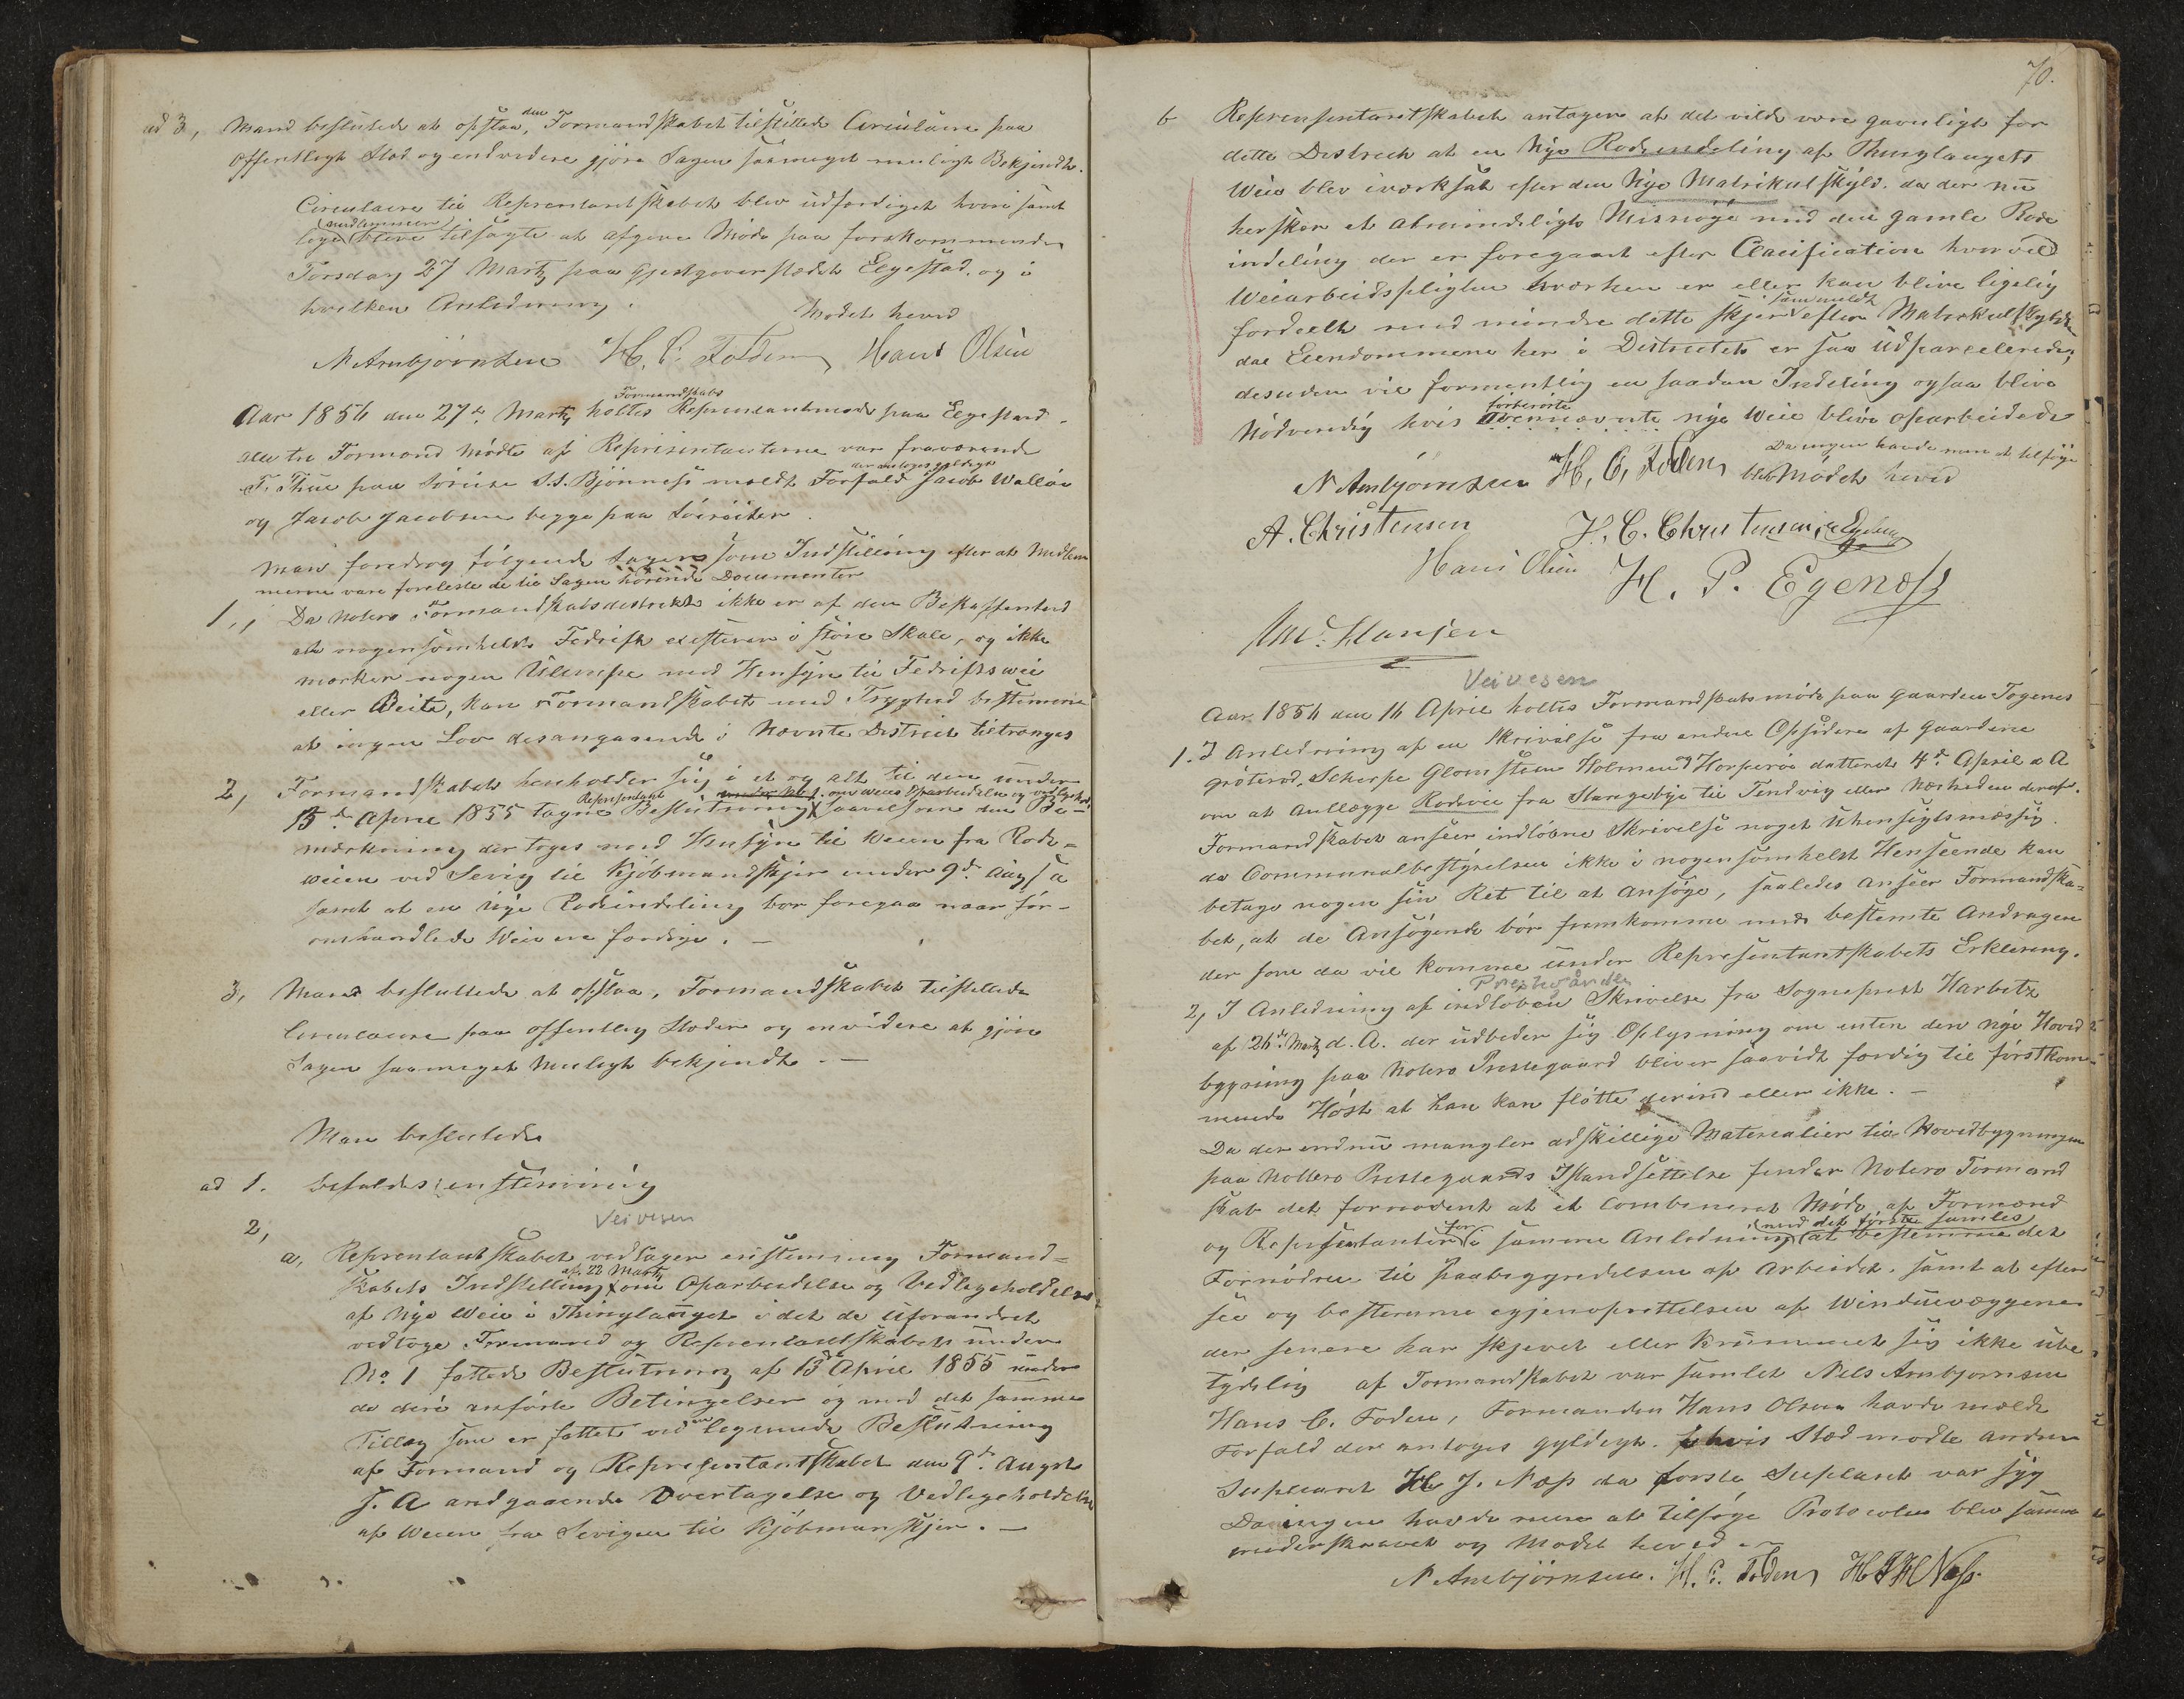 ad 3, Mand beslutede at opslaa, den Formandskabet tilstillede Circulaire paa
offentligt Stæd og endvidere gjöre Sagen saameget muligt Bekjendt.
Circulaire til Reprentantskabet blev udfærdiget hvori samt
lige medlemmer bleve tilsagte at afgive Möde paa forekommende
Torsdag 27 Martz paa Gjestgiverstædet Elgestad. og i
hvilken Anledning. Mödet hevet
N Arnbjörnsen H. C. Foden Hans Olsen
Aar 1856 den 27de Martz holtes Formandskabs Reprentantmöde paa Elgestad.
alle tre Formænd mödte af Representanterne var fraværende
F. Thue paa Söreise S. S. Bjönness meldt Forfald der antoges gyldigt Jacob Walløe
og Jacob Jacobsen begge paa Söreiser.
Man foredrog fölgende Sager som Indstilling efter at Medlem
merne vare foreleste de til Sagen hörende Documenter
1., Da Nøterø Formandskabsdestrekt ikke er af den Beskaffenhed
at nogensomhelst Fedrift existerer i störe Skale, og ikke
mærker nogen Ulempe med Hensÿn til Fedriftsveie
eller Beite, kan Formandskabet med Trÿghed bestemme
at ingen Lov desangaaende i Nævnte District tiltrænges
2, Formandskabet henholder sig i et og alt til den under
15de April 1855 tagne Representant Beslutning under No 1. om Weies Oparbeidelse og vedligehold. saavelsom den Be-
mærkning der toges med Hensÿn til Weien fra Rode-
weien ved Sevig til Kjöbmandskjer under 9de Aug s a
samt at en nÿe Rodeindeling bör foregaa naar för-
omhandlede Weie ere færdige. —
3, Mand besluttede at opslaa, Formandskabet tilstillede
Circulaire paa offentlig Stæder og envidere at gjöre
Sagen saameget Muligt bekjendt. —
Man beslutede
ad 1. befaldes enstemmig
Veivesen
2,
a, Reprentantskabet vedtager enstemmig Formand-
skabets Indstilling af 22 Martz om Oparbeidelse og Vedligeholdelse
af Nÿe Weie i Thinglauget i det de uforandret
vedtoge Formand og Reprentantskabets under
No 1 fattede Beslutning af 13de April 1855 under
de deri anförte Betingelser og med det samme
Tillæg som er fattet ved en lignende Beslutning
af Formand og Representantskabet den 9de August
s. A andgaaende Overtagelse og Vedligeholdelse
af Weien fra Sevigen til Kjöbmanskjer. —
70.
b Reprensentantskabet antager at det vilde være gavnligt for
dette Destrect at en Nÿe Rodeindeling af Thinglaugets
Weie blev iværksat efter den Nÿe Matrikulskÿld. da der nu
hersker et almindeligt Misnöge med den gamle Rode
indeling der er foregaaet efter Clasification hvorved
Weiarbeidspligten hværken er eller kan blive ligelig
fordeelt med mindre dette skjer sammeldt efter Matrekulskÿld
da Eiendommene her i Districtet er saa Udparcelerede,
desuden vil formentlig en saadan Indeling ogsaa blive
Nödvendig hvis förberörte ovennævnte nÿe Weie blive oparbeidede
Da ingen havde mere at tilföje
blev Mödet hevet
N Arnbjörnsen H. C. Foden
A. Christensen H. C. Christensen
Hans Olsen H. P. Egenæss
And. Hansen
Veivesen
Aar 1856 den 16 April holtes Formandskabsmöde paa Gaarden Togenes
1. I Anledning af en Skrivelse fra endere Opsidere af Gaardene
Gröterød, Scherpe Glomsteen Holmen & Horperöe datteret 4de April d. A
om at Anllægge Rodeveie fra Stangebÿe til Tendvig eller Nærheden deraf.
Formandskabet anseer indløbne Skrivelse noget Uhensigtsmæssig.
da Communalbestÿrelsen ikke i nogensomhelst Henseende kan
betage nogen sin Ret til at ansöge, saaledes anseer Formandska-
bet, at de Ansögende bör fremkomme med bestemte Andragen
der som da vil komme under Representantskabets Erklæring.
Prestegården
2, I Anledning af indloben Skrivelse fra Sogneprest Harbitz
af 26de Martz d. A. der udbeder sig Oplysning om enten den nÿe Hoved
bygning paa Noterø Prestegaard bliver saavidt færdig til förstkom-
mende Höst at han kan flötte derind eller ikke. —
Da der endnu mangler adskillige Materialier til Hovedbygningen
paa Nötterø Prestegaards Istandsettelse finder Noterø Formand
skab det fornødent at et Combineret Möde af Formænd
og Representanter for i samme Anledning med det förste samles at bestemme det
Fornödne til Paabegyndelsen af Arbeidet. samt at efter
see og bestemme egjenoprettelsen af Winduevæggene
der senere har skjevet eller krummet sig ikke ube
tÿdelig af Formandskabet var samlet Nels Arnbjornsen
Hans C. Foden, Formanden Hans Olsen havde meldt
Forfald der antoges gyldigt. I hvis Stæd mødte anden
Supleant H J. Næss da förste Supleant var sÿg
Da ingen havde mere at tilföje Protocolen blev samme
underskrevet og Mödet heved
N Arnbjörnsen. H. C. Foden H J H Næss.